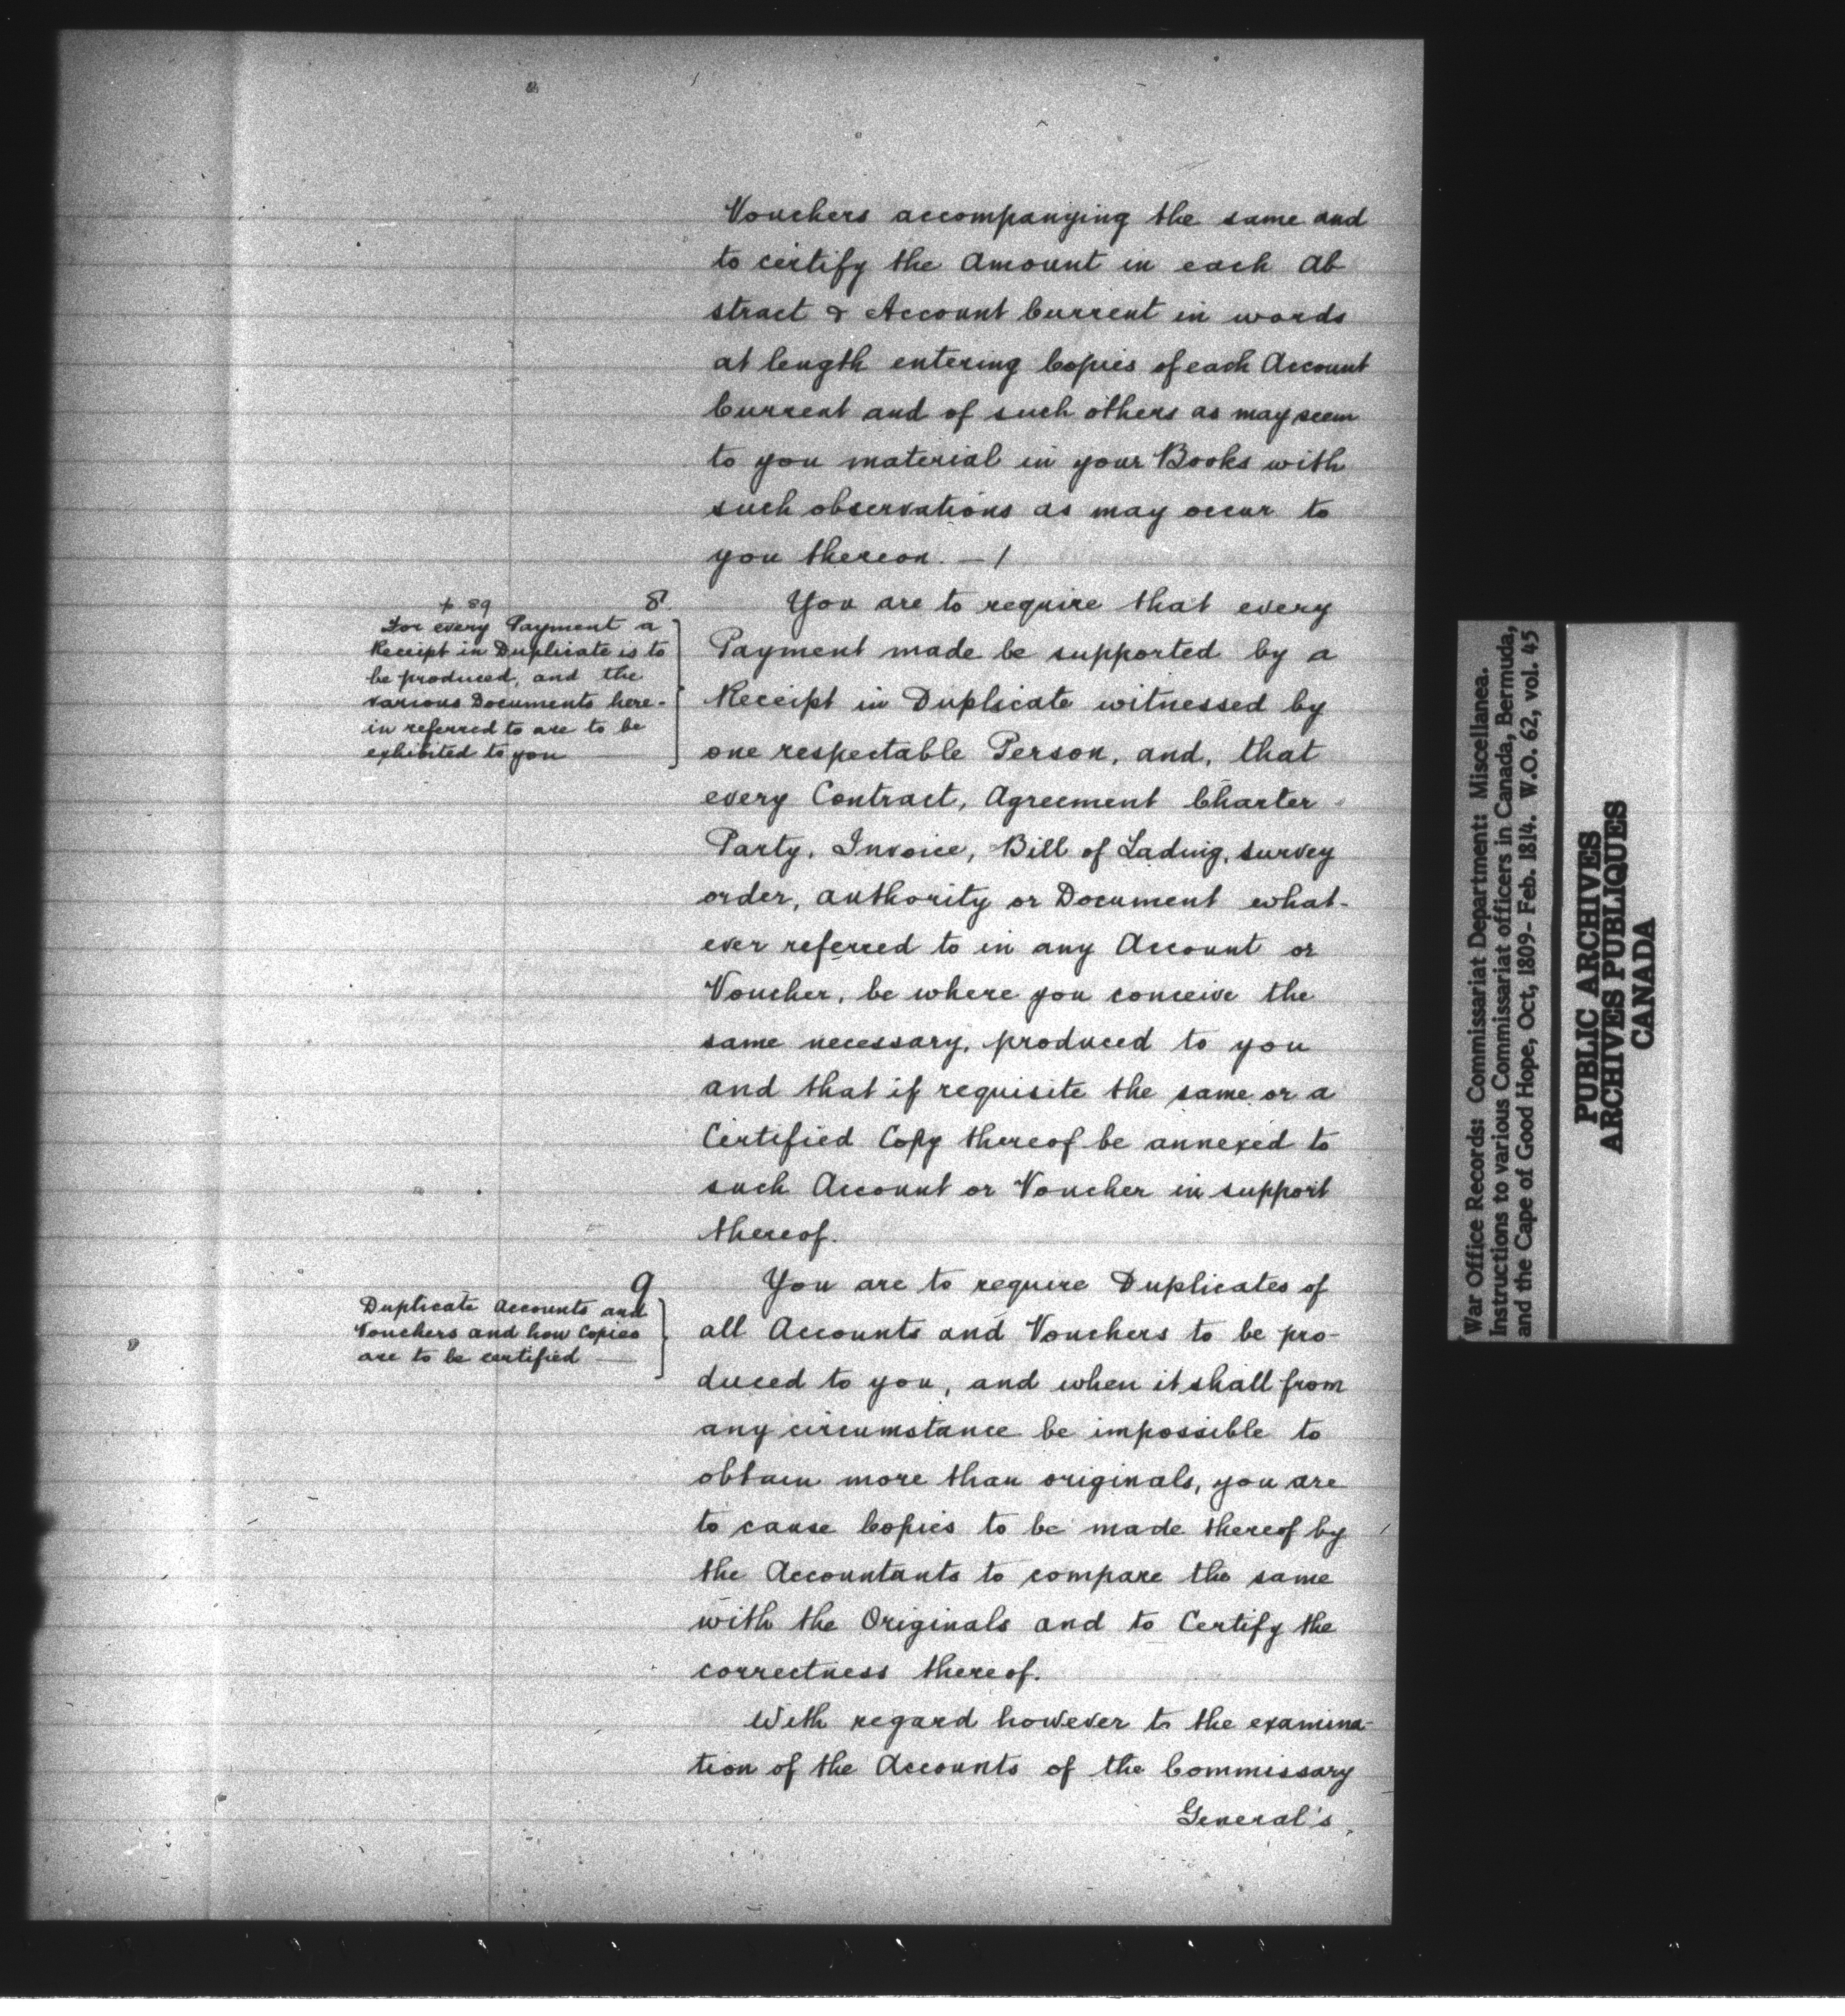 Vouchers accompanying the same and
to certify the Amount in each Ab
stract & Account Current in words
at length entering Copies of each Account
Current and of such others as may seem
to you material in your Books with
such observations as may occur to
you thereon. — /
p. 89
8.
For every Payment a
Receipt in Duplicate is to
be produced, and the
various Documents here-
in referred to are to be
exhibited to you
You are to require that every
Payment made be supported by a
Receipt in Duplicate witnessed by
one respectable Person, and, that
every Contract, Agreement Charter
Party, Invoice, Bill of Lading, survey
order, authority or Document what-
ever referred to in any Account or
Voucher, be where you conceive the
same necessary, produced to you
and that if requisite the same or a
Certified Copy thereof be annexed to
such Account or Voucher in support
thereof.
9
Duplicate Accounts and
Vouchers and how Copies
are to be certified
You are to require Duplicates of
all Accounts and Vouchers to be pro-
duced to you, and when it shall from
any circumstance be impossible to
obtain more than originals, you are
to cause Copies to be made thereof by
the Accountants to compare the same
with the Originals and to Certify the
correctness thereof.
With regard however to the examina-
tion of the Accounts of the Commissary
General's
War Office Records: Commissariat Department: Miscellanea.
Instructions to various Commissariat officers in Canada, Bermuda,
and the Cape of Good Hope, Oct, 1809- Feb. 1814. W.O. 62, vol. 45
PUBLIC ARCHIVES
ARCHIVES PUBLIQUES
CANADA